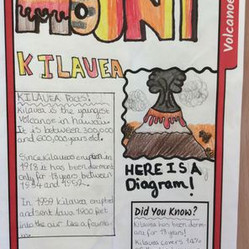 MOUNT
Volcanoe
KILAUEA
KILAUEA Facts:
Kilauea is the youngest
volcanoe in hawaii.
It is between 300,000
and 600,000 years old.
Since Kilauea erupted in
1918 it has been dormant
only for 18 years between
1934 and 1952.
In 1959 kilauea erupted
and sent lava 1900 feet
into the air like a
HERE IS A
Diagram!
Did You Know?
Kilauea has been dorm-
ant for 18 years!
Kilauea covers 14%